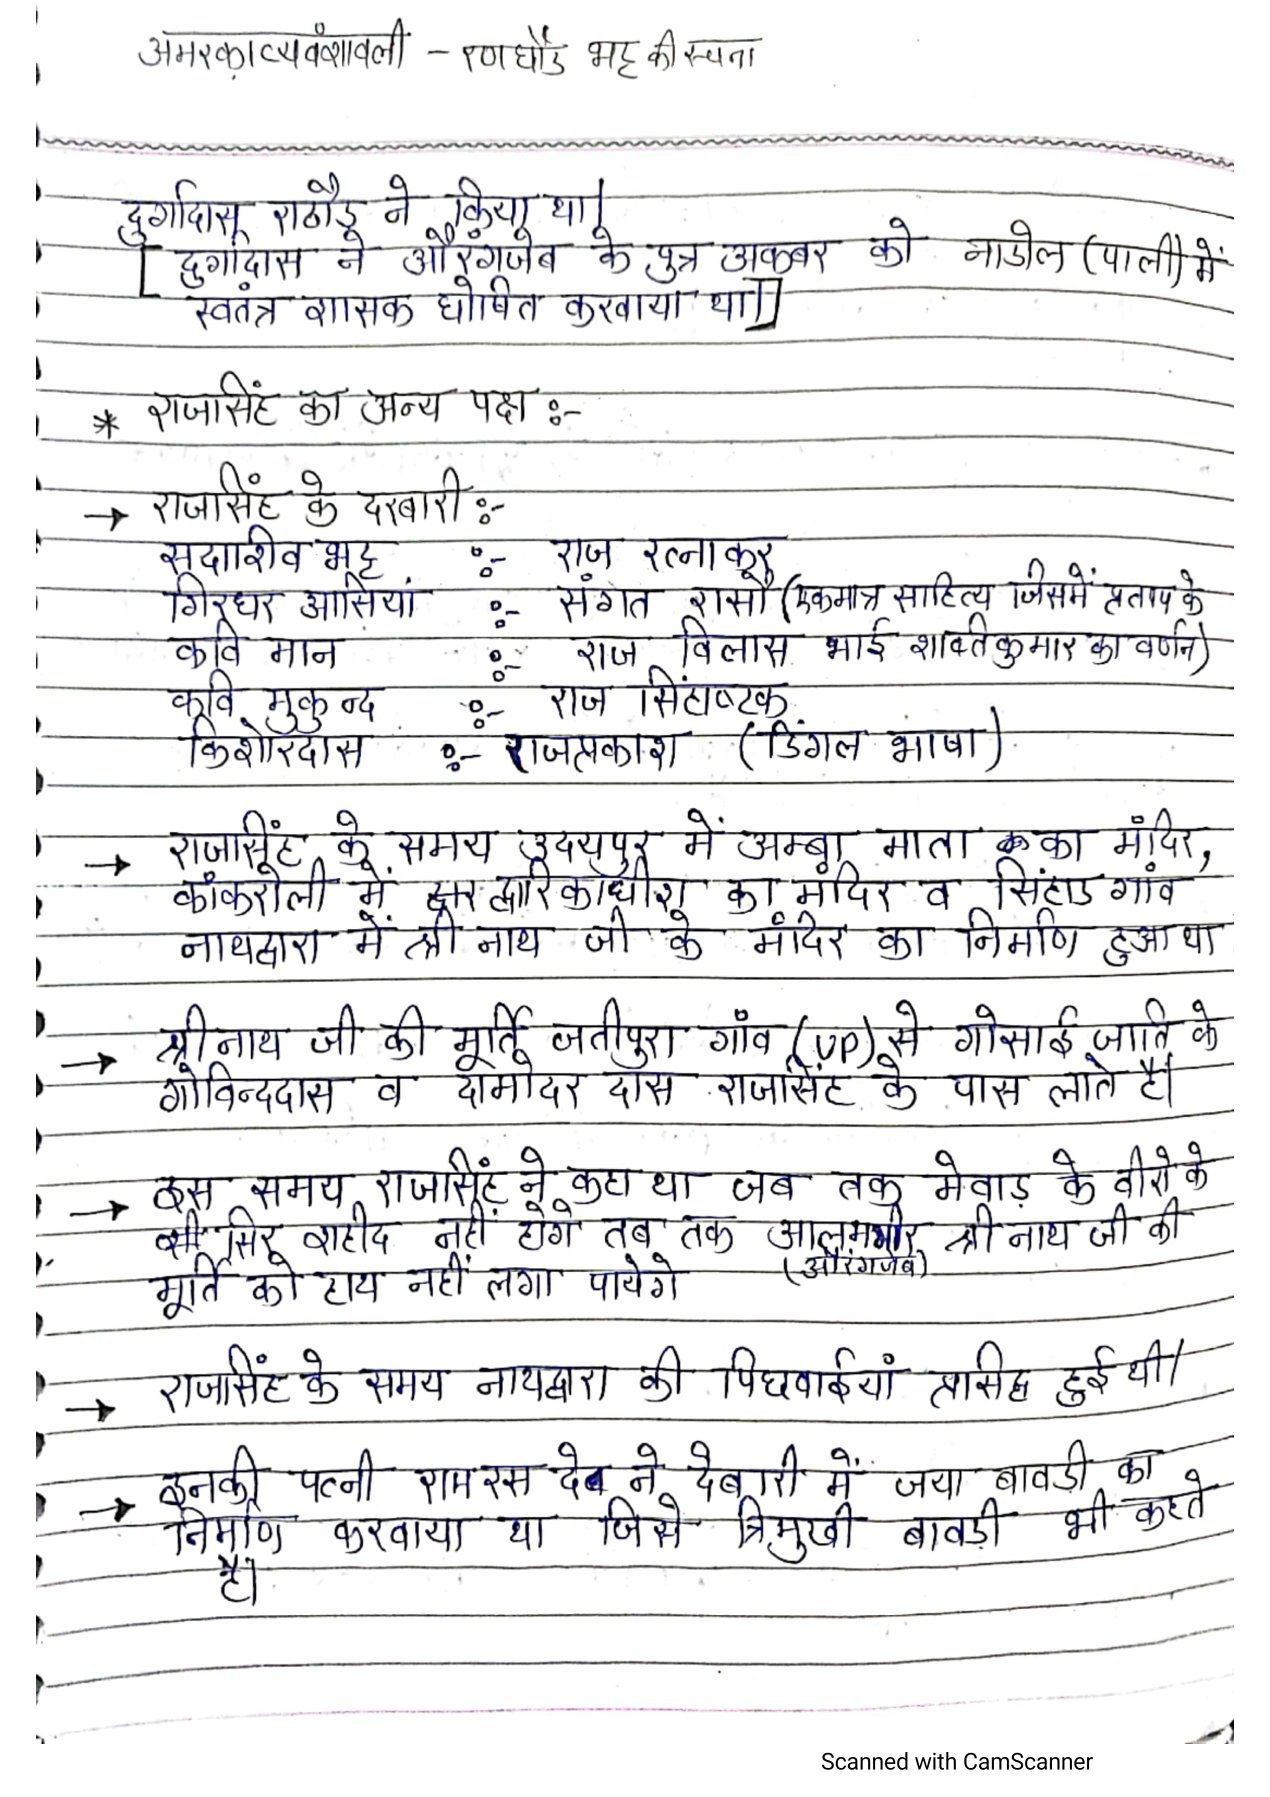 अमरकाव्यवंशावली - रणछौड भट्ट की रचना
दुर्गादास राठौड़ ने किया था|
[ दुर्गादास ने औरंगजेब के पुत्र अकबर को नाडोल (पाली) में
स्वतंत्र शासक घोषित करवाया था|]
* राजसिंह का अन्य पक्ष :-
→ राजसिंह के दरबारी :-
सदाशिव भट्ट :- राज रत्नाकर
गिरधर आसियां :- संगत रासौ (एकमात्र साहित्य जिसमें प्रताप के
कवि मान :- राज विलास भाई शक्तिकुमार का वर्णन)
कवि मुकुन्द :- राज सिंहाष्टक
किशोरदास :- राजप्रकाश (डिंगल भाषा)
→ राजसिंह के समय उदयपुर में अम्बा माता का मंदिर,
कांकरोली में द्वारिकाधीश का मंदिर व सिंहाड गांव
नाथद्वारा में श्री नाथ जी के मंदिर का निर्माण हुआ था
→ श्री नाथ जी की मूर्ति जतीपुरा गाँव (UP) से गोसाई जाति के
गोविन्ददास व दामोदर दास राजसिंह के पास लाते है|
→ इस समय राजसिंह ने कहा था जब तक मेवाड़ के वीरो के
सिर शहीद नहीं होगे तब तक आलमगीर श्री नाथ जी की
(औरंगजेब)
मूर्ति को हाथ नहीं लगा पायेगे
→ राजसिंह के समय नाथद्वारा की पिछवाईयां प्रसिद्ध हुई थी|
→ इनकी पत्नी रामरस देव ने देबारी में जया बावडी का
निर्माण करवाया था जिसे त्रिमुखी बावड़ी भी कहते
है|
Scanned with CamScanner